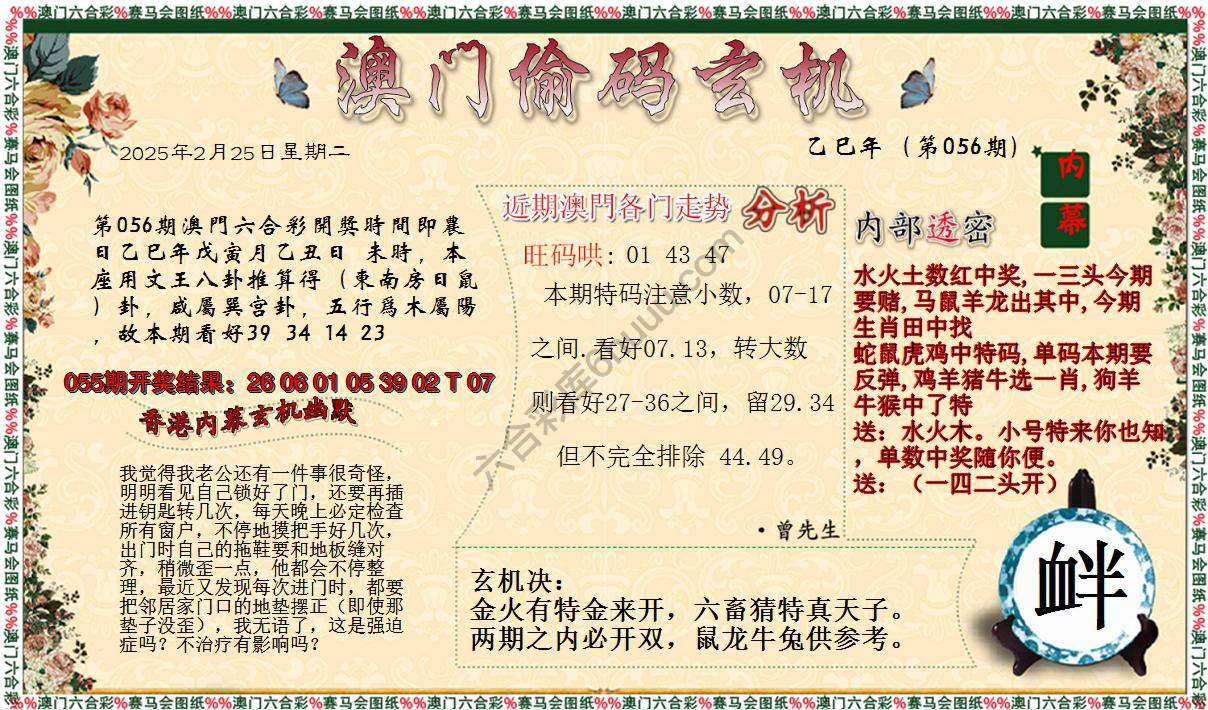 %%澳门六合彩%赛马会图纸%%澳门六合彩%赛马会图纸%%澳门六合彩%赛马会图纸%%澳门六合彩%赛马会图纸%%澳门六合彩%赛马会图纸%%澳门六合彩%赛马会图纸%%
澳门偷码玄机
2025年2月25日星期二
乙巳年（第056期）
内
幕
第056期澳門六合彩開獎時間即農
日乙巳年戊寅月乙丑日 未時，本
座用文王八卦推算得（東南房日鼠
）卦，咸屬巽宫卦，五行爲木屬陽
，故本期看好39 34 14 23
055期开奖结果：26 06 01 05 39 02 T 07
香港内幕玄机幽默
我觉得我老公还有一件事很奇怪，
明明看见自己锁好了门，还要再插
进钥匙转几次，每天晚上必定检查
所有窗户，不停地摸把手好几次，
出门时自己的拖鞋要和地板缝对
齐，稍微歪一点，他都会不停整
理，最近又发现每次进门时，都要
把邻居家门口的地垫摆正（即使那
垫子没歪），我无语了，这是强迫
症吗？不治疗有影响吗？
近期澳門各门走势 分析
旺码哄：01 43 47
本期特码注意小数，07-17
之间.看好07.13，转大数
则看好27-36之间，留29.34
但不完全排除 44.49。
·曾先生
内部透密
水火土数红中奖,一三头今期
要赌,马鼠羊龙出其中,今期
生肖田中找
蛇鼠虎鸡中特码,单码本期要
反弹,鸡羊猪牛选一肖,狗羊
牛猴中了特
送：水火木。小号特来你也知
，单数中奖随你便。
送：（一四二头开）
玄机决：
金火有特金来开，六畜猜特真天子。
两期之内必开双，鼠龙牛兔供参考。
衅
%%澳门六合彩%赛马会图纸%%澳门六合彩%赛马会图纸%%澳门六合彩%赛马会图纸%%澳门六合彩%赛马会图纸%%澳门六合彩%赛马会图纸%%澳门六合彩%赛马会图纸%%